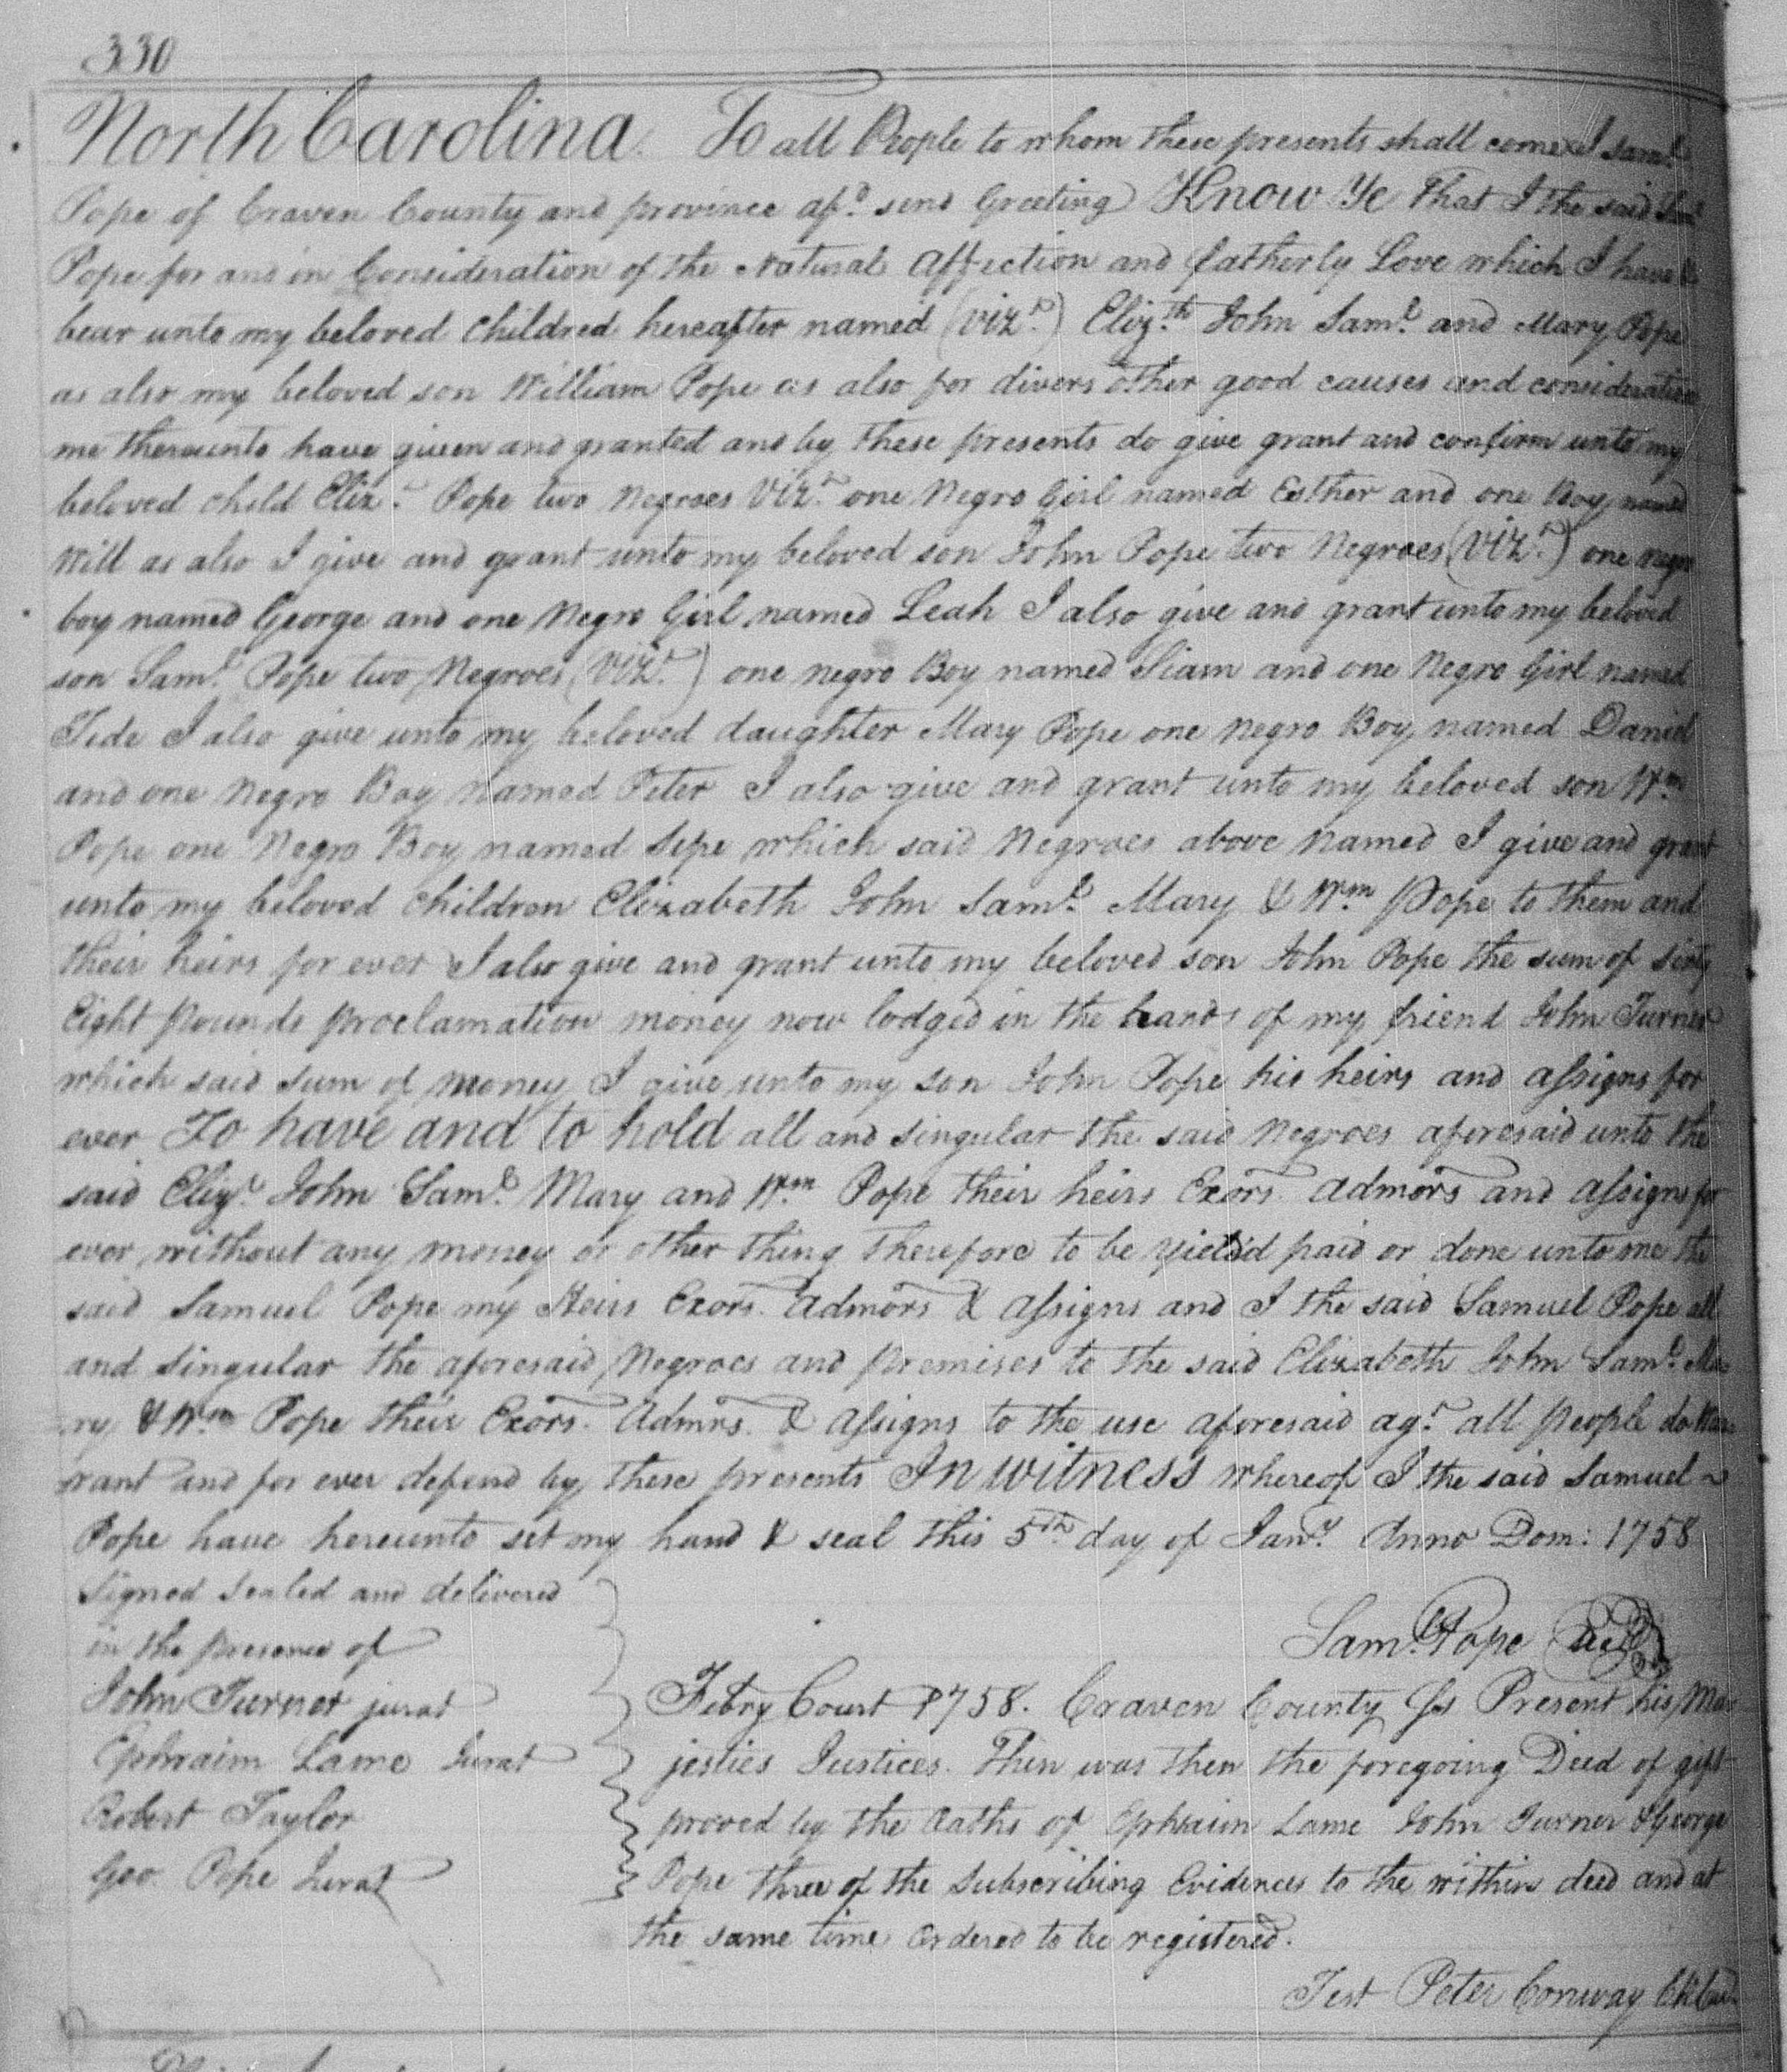 330
North Carolina. To all People to whom these presents shall come I Sam.l
Pope of Craven County and province af.d send Greeting Know Ye That I the said Sam.l
Pope for and in Consideration of the Natural Affection and fatherly Love which I have &
bear unto my beloved Childred hereafter named (Viz.t) Eliz.th John Sam.l and Mary Pope
as also my beloved son William Pope as also for divers other good causes and consideration
me thereunto have given and granted and by these presents do give grant and confirm unto my
beloved child Eliz.a Pope two Negroes Viz.t one Negro Girl named Esther and one Boy named
Will as also I give and grant unto my beloved son John Pope two Negroes (Viz.t) one negro
boy named George and one Negro Girl named Leah I also give and grant unto my beloved
son Sam.l Pope two Negroes (Viz.t) one negro Boy named Siam and one Negro Girl named
Tide I also give unto my beloved daughter Mary Pope one negro Boy named Daniel
and one Negro Boy named Peter I also give and grant unto my beloved son W.m
Pope one Negro Boy named Sepe which said Negroes above named I give and grant
unto my beloved Children Elizabeth John Sam.l Mary & Wm Pope to them and
their heirs for ever I also give and grant unto my beloved son John Pope the sum of sixty
Eight pounds proclamation money now lodged in the hands of my friend John Turner
which said sum of money I give unto my son John Pope his heirs and assigns for
ever To have and to hold all and singular the said Negroes aforesaid unto the
said Eliz.a John Sam.l Mary and Wm Pope their heirs Exors. Admors and assigns for
ever without any money or other thing therefore to be yield'd paid or done unto me the
said Samuel Pope my Heirs Exors. Admors & assigns and I the said Samuel Pope all
and singular the aforesaid Negroes and premises to the said Elizabeth John Sam.l Ma-
ry & W.m Pope their Exors. Admrs. & assigns to the use aforesaid ag.t all people do War-
rant and for ever defend by these presents In witness whereof I the said Samuel
Pope have hereunto set my hand & seal this 5th day of Jan.y Anno Dom: 1758
Signed sealed and delivered
in the presence of
Sam.l Pope
John Turner jurat
Ephraim Lame Jurat
Robert Taylor
Geo. Pope Jurat
Febry Court 1758. Craven County Ss Present his Ma-
jesties Justices. Then was then the foregoing Deed of gift
proved by the Oaths of Ephraim Lame John Turner & George
Pope three of the Subscribing Evidences to the within deed and at
the same time ordered to be registered.
Test Peter Conway